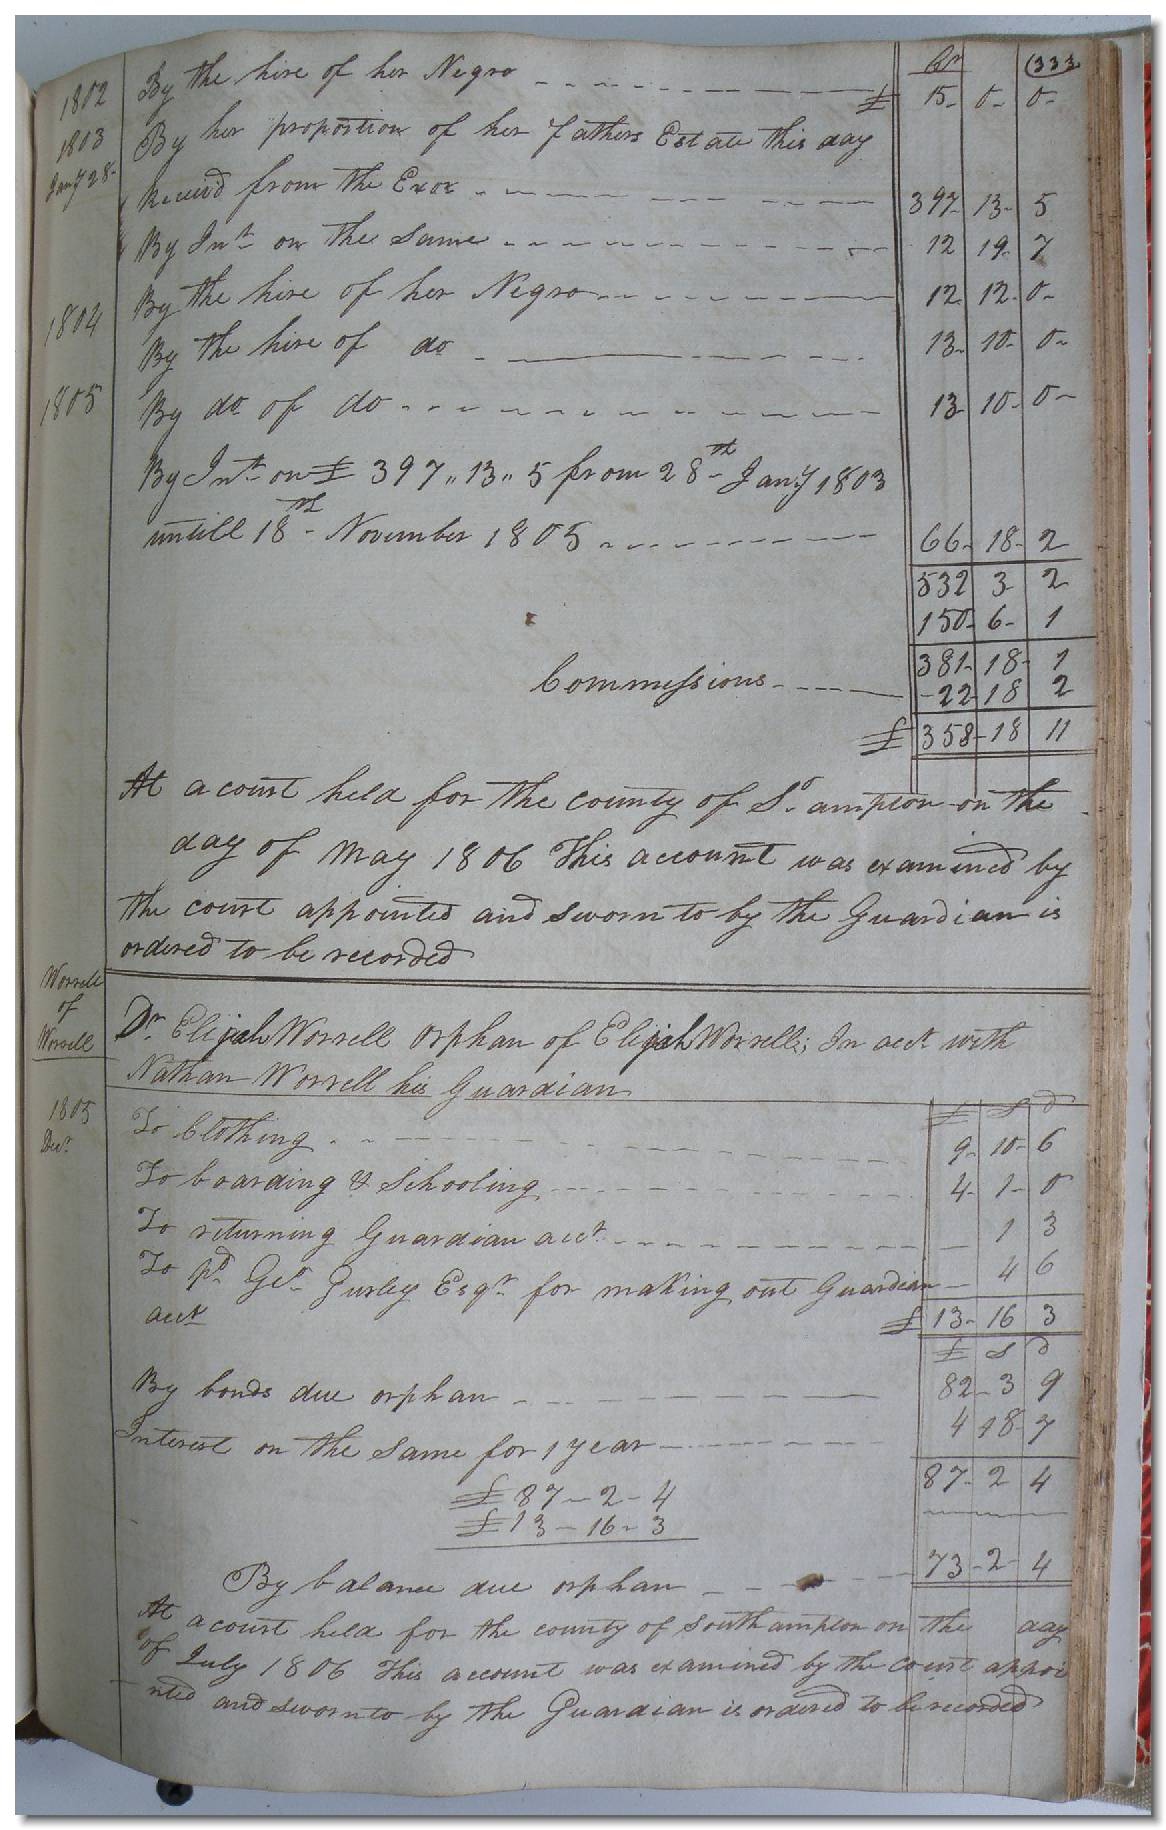 Cr (333
1802 By the hire of her Negro £ 15 - 0 - 0 -
1803 By her proportion of her fathers Estate this day
Jany 28 - Receivd from the Exor 397 - 13 - 5
By Int on the Same 12 19 - 7
By the hire of her Negro 12 12 - 0 -
1804 By the hire of do 13 - 10 - 0 -
1805 By do of do 13 - 10 - 0 -
By Int on £ 397 " 13 " 5 from 28th Jany 1803
untill 18th November 1805 66 - 18 - 2
532 3 2
150 - 6 - 1
381 - 18 - 1
Commissions - 22 - 18 2
£ 358 - 18 11
At a court held for the county of So. ampton on the
day of May 1806 This account was examined by
the court appointed and sworn to by the Guardian is
ordered to be recorded
Worrell
of
Worrell
Dr Elijah Worrell Orphan of Elijah Worrell; In acct with
Nathan Worrell his Guardian
£ S d
1805 To Clothing 9 - 10 - 6
Decr To boarding & Schooling 4 - 1 - 0
To returning Guardian acct 1 3
To pd Geo Gurley Esqr for making out Guardian 4 6
acct £ 13 - 16 3
£ S d
By bonds due orphan 82 - 3 9
Interest on the Same for 1 year 4 18 - 7
87 - 2 4
£ 87 - 2 - 4
£ 13 - 16 - 3
By balance due orphan 73 - 2 - 4
At a court held for the county of Southampton on the day
of July 1806 This account was examined by the court appoi
nted and sworn to by the Guardian is ordered to be recorded